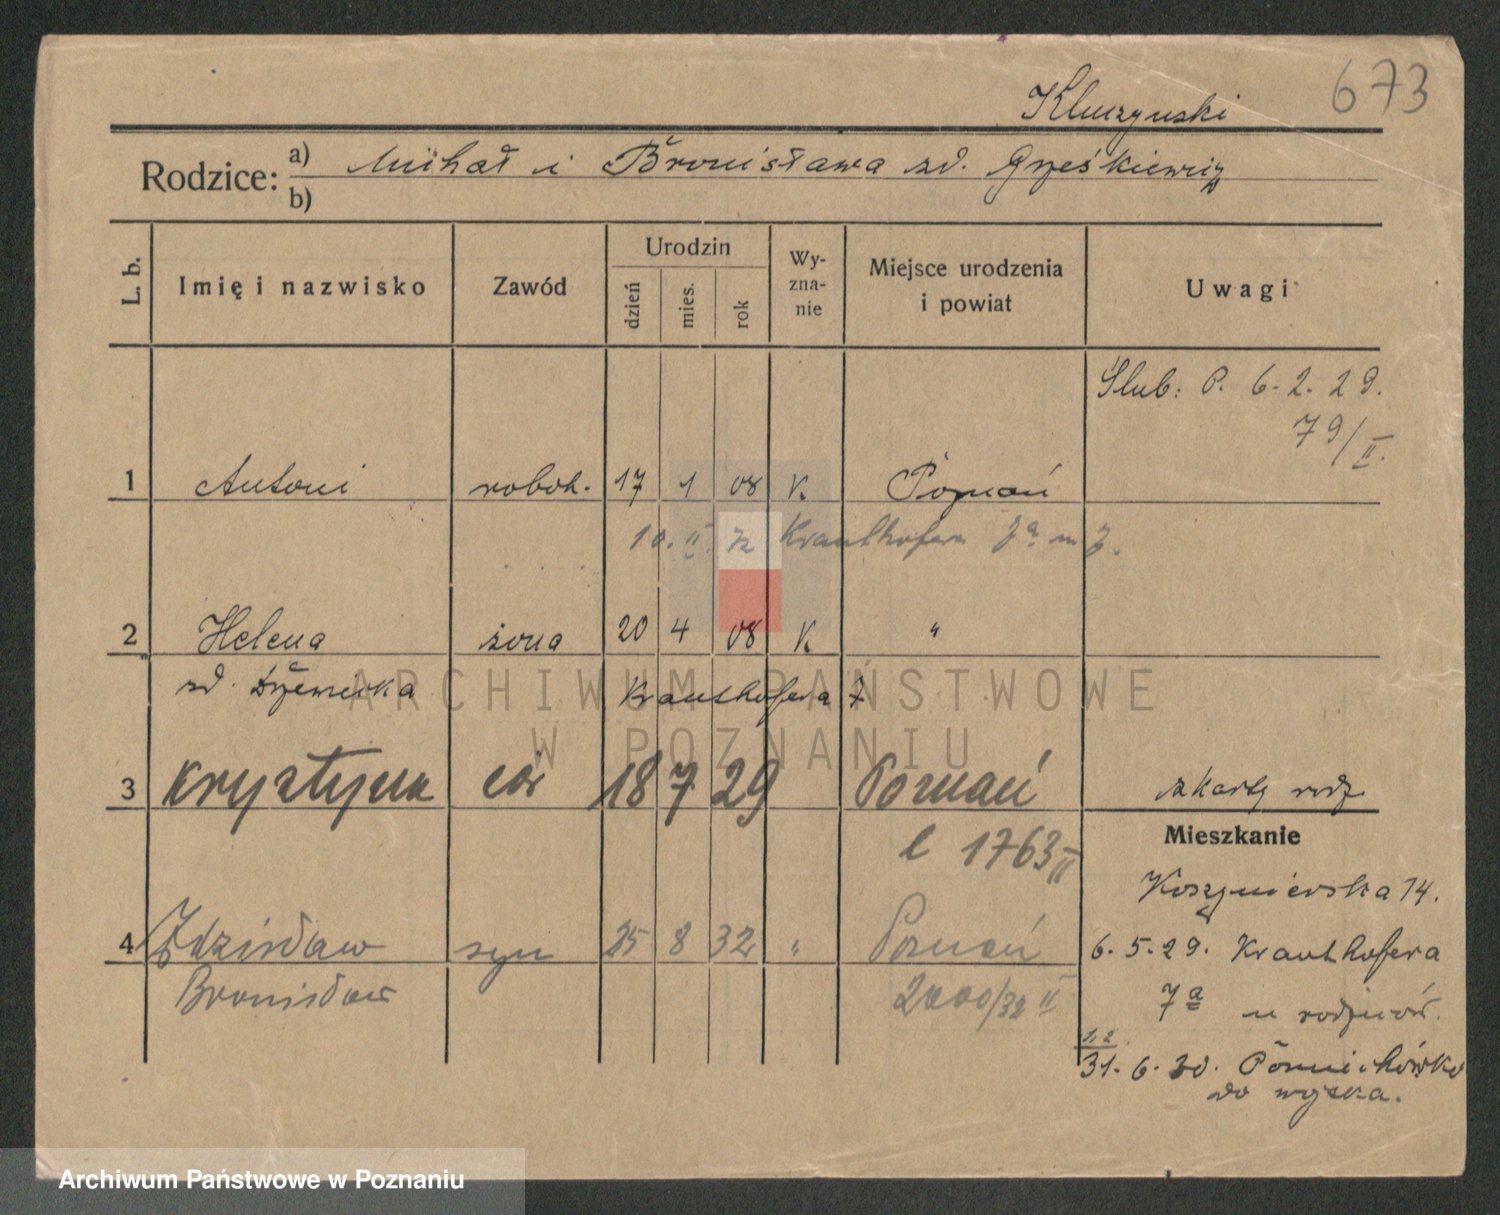 673
Kluczynski
Rodzice: a) Michał i Bronisława zd. Grześkiewicz
b)
L. b. Imię i nazwisko Zawód Urodzin dzień mies. rok Wy-zna-nie Miejsce urodzenia i powiat Uwagi
Ślub: P. 6. 2. 29.
79/II.
1 Antoni robotn. 17 1 08 K Poznań
10. II. 32 Krauthofera 7a m
2 Helena żona 20 4 08 K "
zd. Krauthofera 7
3 Krystyna cór 18 7 29 Poznań z karty rodz.
l 1763 II
Mieszkanie
14.
4 Zdzisław syn 25 8 32 " Poznań 6. 5. 29. Krauthofera
Bronisław 2000/32 II 7a u rodziców.
31.
do wojska.
ARCHIWUM PAŃSTWOWE
W POZNANIU
Archiwum Państwowe w Poznaniu